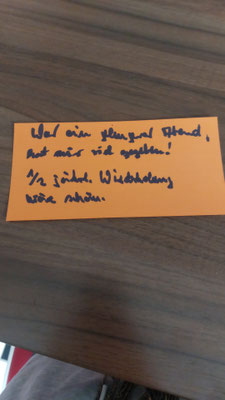 War ein gelungener Abend,
hat mir viel gegeben!
1/2 jährl. Wiederholung
wäre schön.